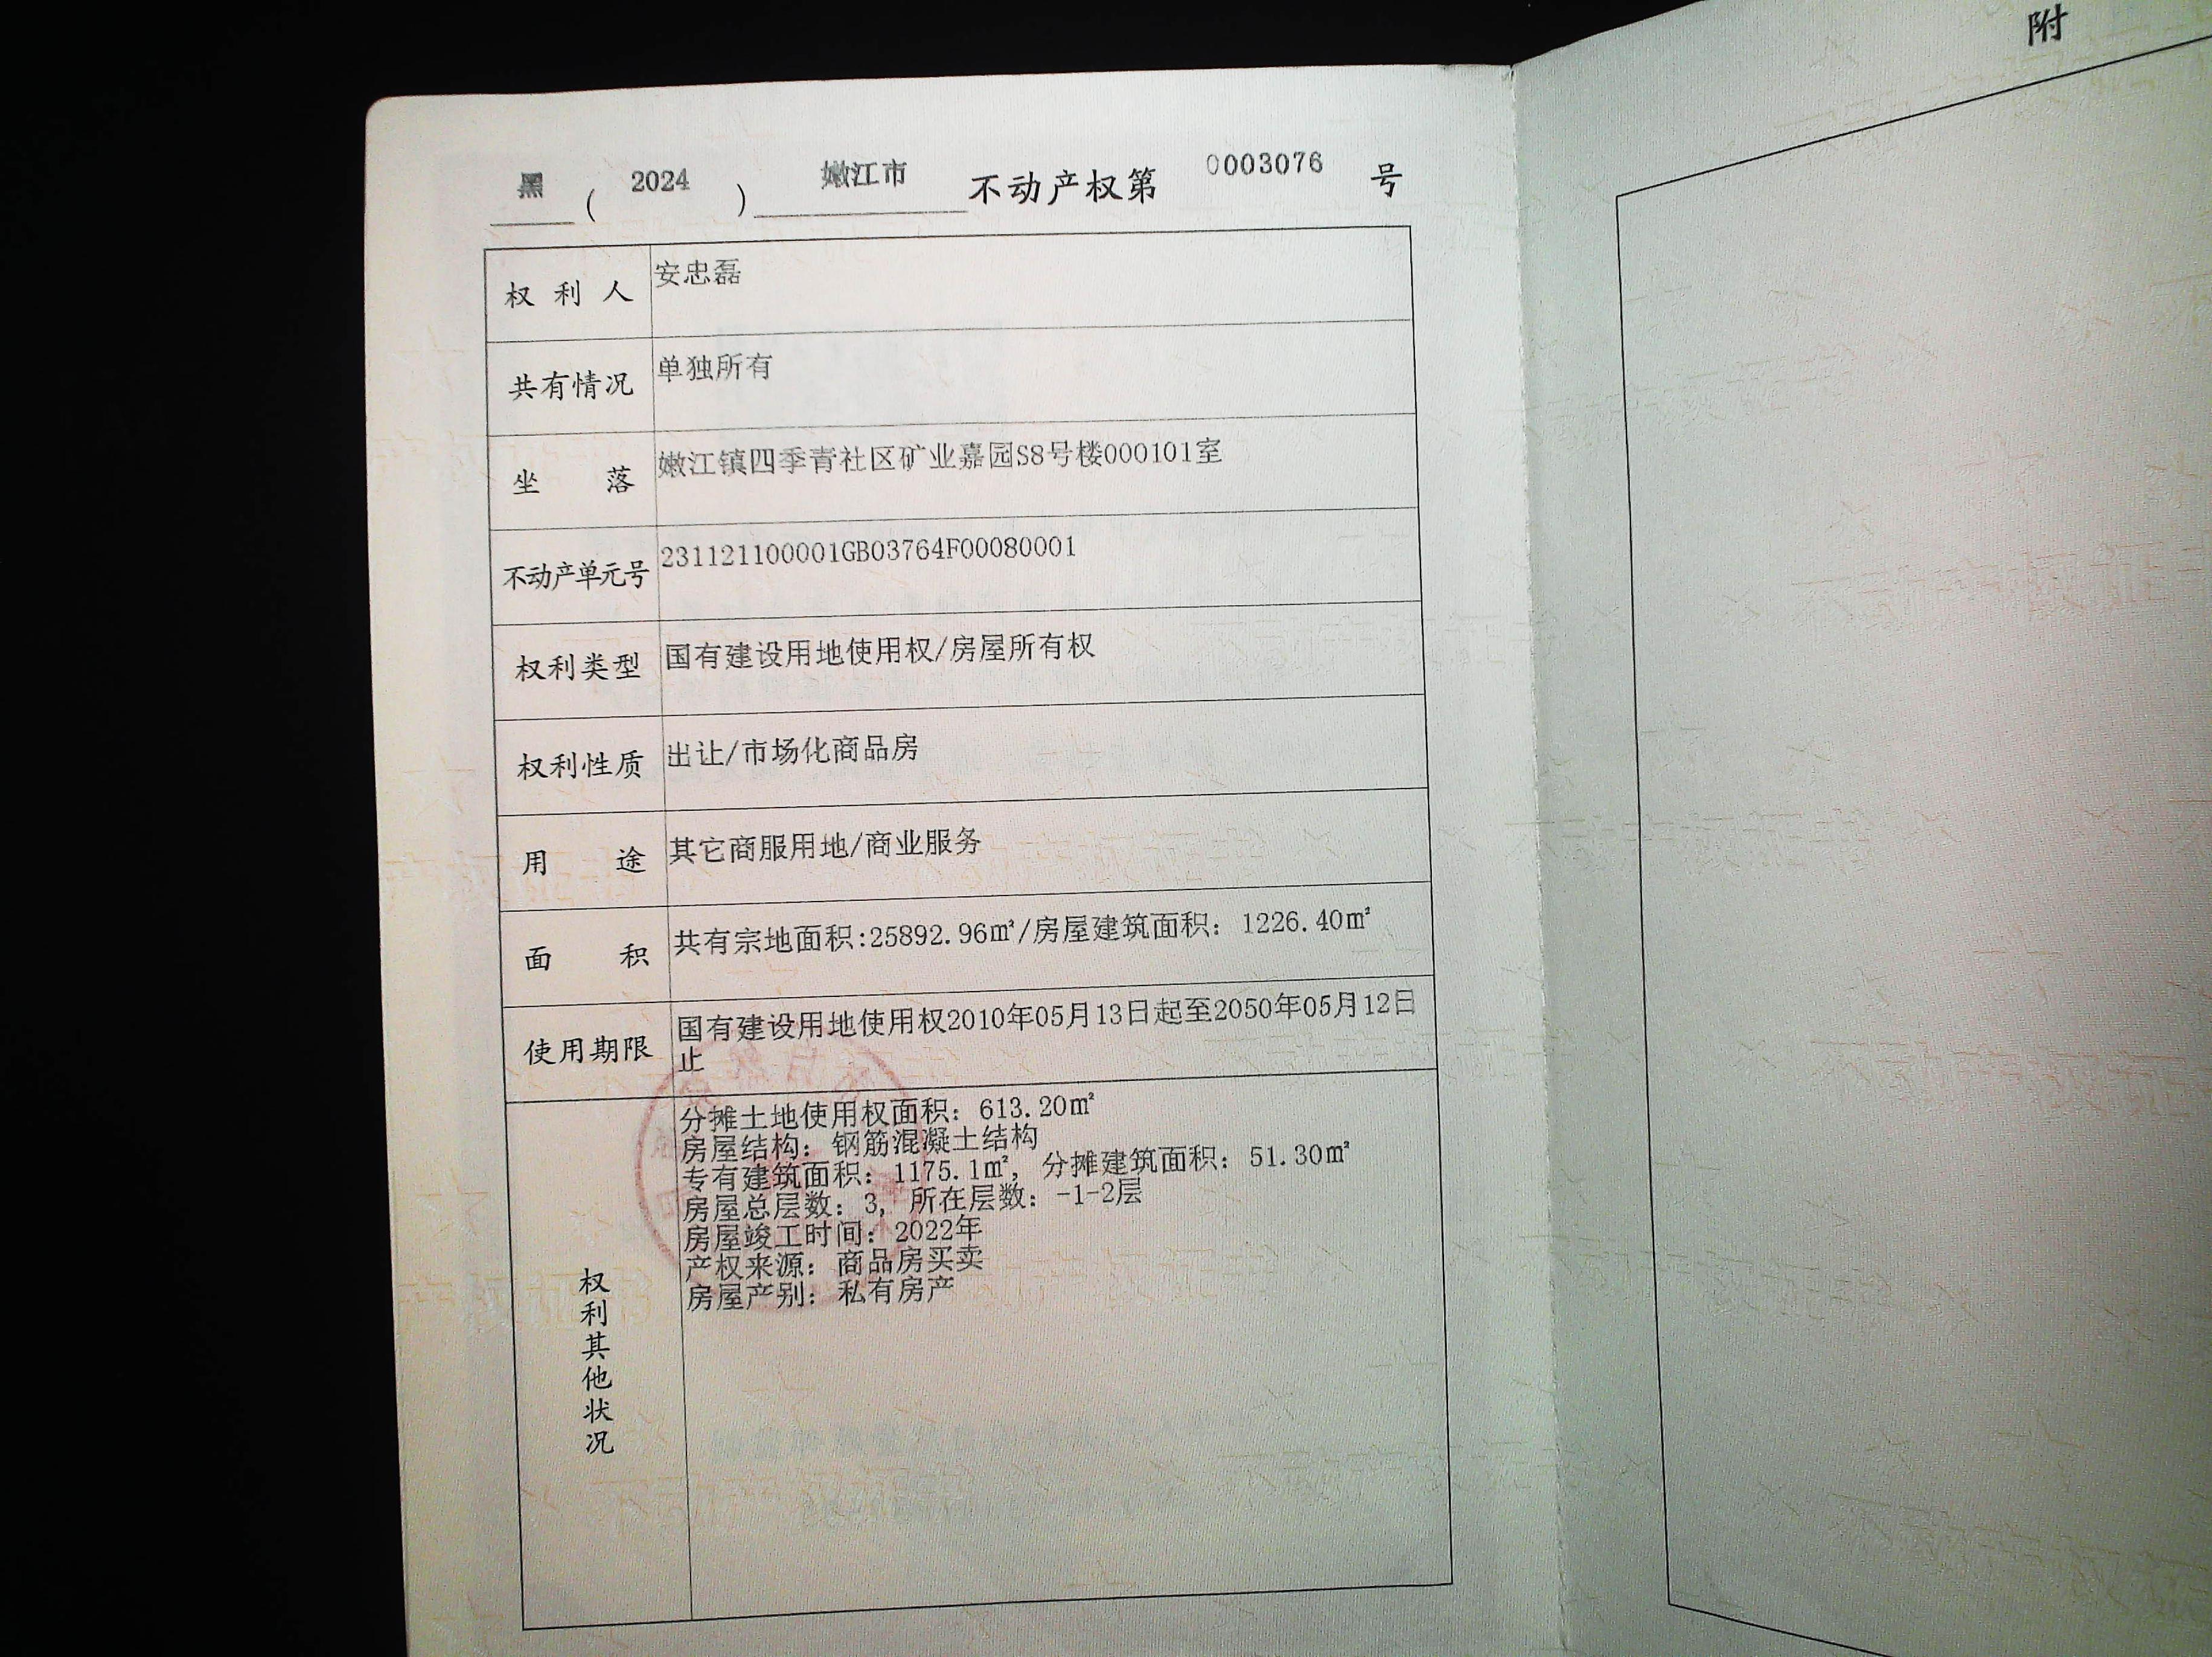 黑(2024)嫩江市不动产权第0003076号
附
权利人 安忠磊
共有情况 单独所有
坐落 嫩江镇四季青社区矿业嘉园S8号楼000101室
不动产单元号 231121100001GB03764F00080001
权利类型 国有建设用地使用权/房屋所有权
权利性质 出让/市场化商品房
用途 其它商服用地/商业服务
面积 共有宗地面积:25892.96㎡/房屋建筑面积：1226.40㎡
使用期限 国有建设用地使用权2010年05月13日起至2050年05月12日
止
权利其他状况
分摊土地使用权面积：613.20㎡
房屋结构：钢筋混凝土结构
专有建筑面积：1175.1㎡，分摊建筑面积：51.30㎡
房屋总层数：3，所在层数：-1-2层
房屋竣工时间：2022年
产权来源：商品房买卖
房屋产别：私有房产